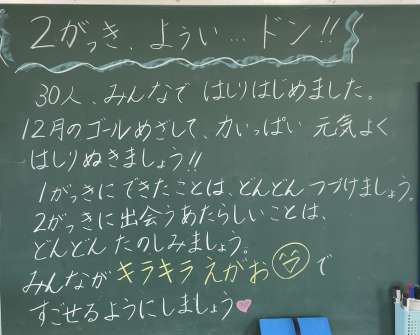 2がっき、ようい…ドン!!
30人、みんなで はしりはじめました。
12月のゴールめざして、力いっぱい 元気よく
はしりぬきましょう!!
1がっきにできたことは、どんどん つづけましょう。
2がっきに出会うあたらしいことは、
どんどん たのしみましょう。
みんなが キラキラ えがお で
すごせるようにしましょう